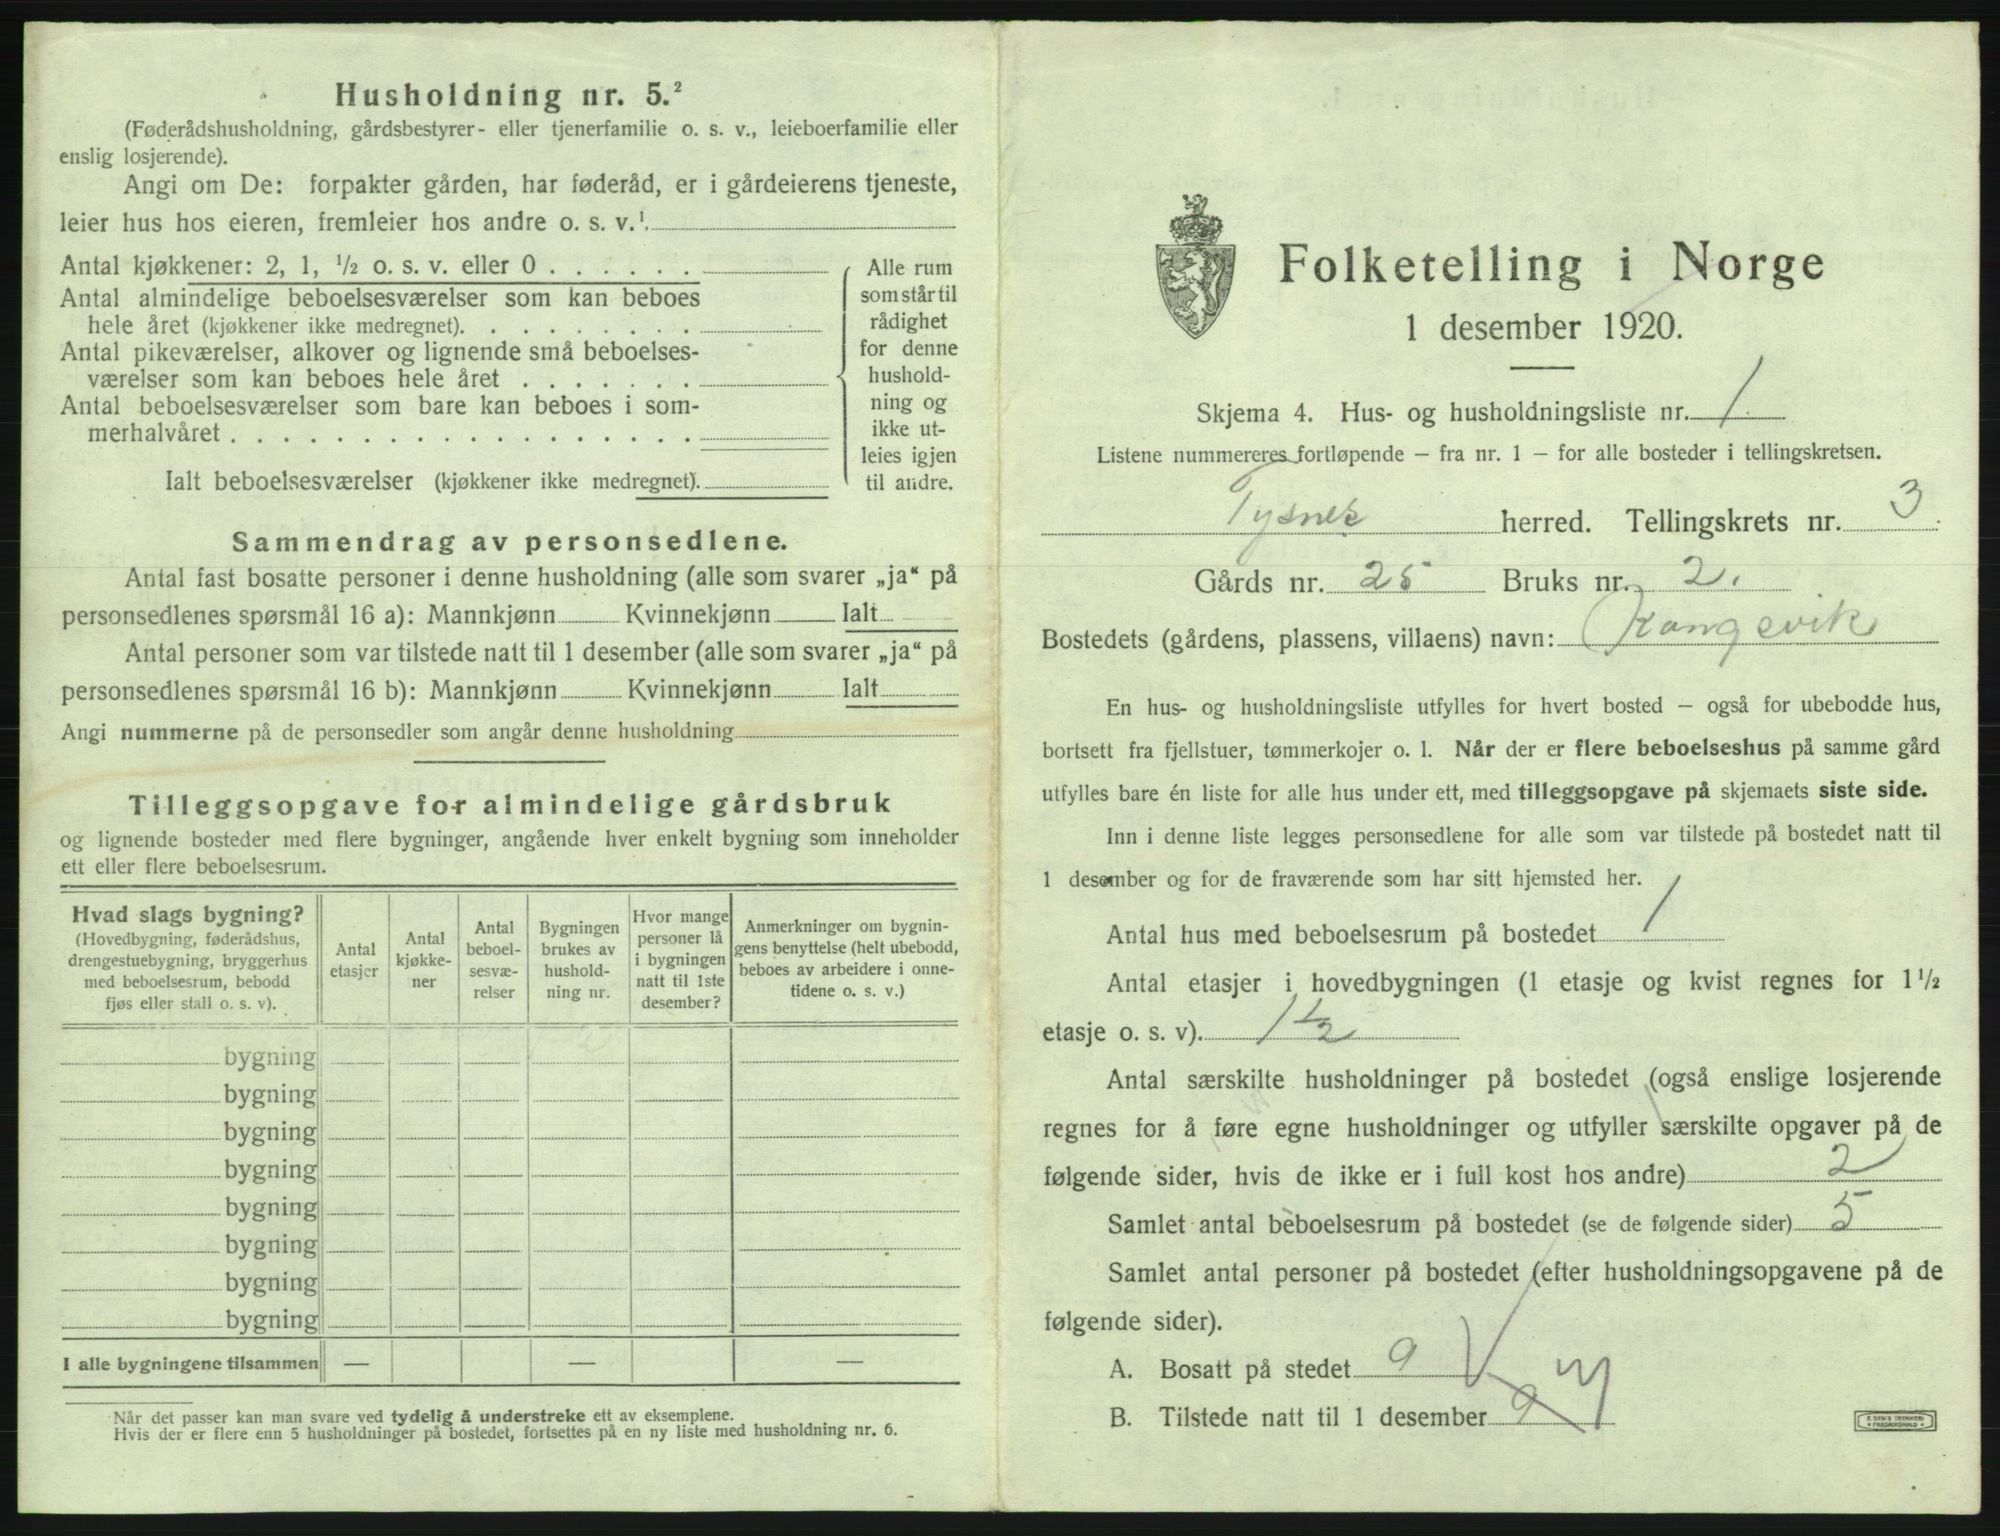 Husholdning nr. 5.²
(Føderådshusholdning, gårdsbestyrer- eller tjenerfamilie o. s. v., leieboerfamilie eller
enslig losjerende).
Angi om De: forpakter gården, har føderåd, er i gårdeierens tjeneste,
leier hus hos eieren, fremleier hos andre o. s. v.¹.
Antal kjøkkener: 2, 1, ½ o. s. v. eller 0 . . . . . .
Antal almindelige beboelsesværelser som kan beboes
hele året (kjøkkener ikke medregnet). . . . . . . . .
Antal pikeværelser, alkover og lignende små beboelses-
værelser som kan beboes hele året . . . . . . .
Antal beboelsesværelser som bare kan beboes i som-
merhalvåret . . . . . . . . . . . . . . . . . .
Ialt beboelsesværelser (kjøkkener ikke medregnet).
Alle rum
som står til
rådighet
for denne
hushold-
ning og
ikke ut-
leies igjen
til andre.
Sammendrag av personsedlene.
Antal fast bosatte personer i denne husholdning (alle som svarer „ja“ på
personsedlenes spørsmål 16 a): Mannkjønn Kvinnekjønn Ialt
Antal personer som var tilstede natt til 1 desember (alle som svarer „ja“ på
personsedlenes spørsmål 16 b): Mannkjønn Kvinnekjønn Ialt
Angi nummerne på de personsedler som angår denne husholdning
Tilleggsopgave for almindelige gårdsbruk
og lignende bosteder med flere bygninger, angående hver enkelt bygning som inneholder
ett eller flere beboelsesrum.
Hvad slags bygning?
(Hovedbygning, føderådshus,
drengestuebygning, bryggerhus
med beboelsesrum, bebodd
fjøs eller stall o. s. v).
Antal
etasjer
Antal
kjøkke-
ner
Antal
beboel-
sesvæ-
relser
Bygningen
brukes av
hushold-
ning nr.
Hvor mange
personer lå
i bygningen
natt til 1ste
desember?
Anmerkninger om bygnin-
gens benyttelse (helt ubebodd,
beboes av arbeidere i onne-
tidene o. s. v.)
bygning
bygning
bygning
bygning
bygning
bygning
bygning
bygning
I alle bygningene tilsammen — — —
Når det passer kan man svare ved tydelig å understreke ett av eksemplene.
Hvis der er flere enn 5 husholdninger på bostedet, fortsettes på en ny liste med husholdning nr. 6.
Folketelling i Norge
1 desember 1920.
Skjema 4. Hus- og husholdningsliste nr. 1
Listene nummereres fortløpende — fra nr. 1 — for alle bosteder i tellingskretsen.
Tysnes herred. Tellingskrets nr. 3
Gårds nr. 25 Bruks nr. 2.
Bostedets (gårdens, plassens, villaens) navn: Kongsvik
En hus- og husholdningsliste utfylles for hvert bosted — også for ubebodde hus,
bortsett fra fjellstuer, tømmerkojer o. l. Når der er flere beboelseshus på samme gård
utfylles bare én liste for alle hus under ett, med tilleggsopgave på skjemaets siste side.
Inn i denne liste legges personsedlene for alle som var tilstede på bostedet natt til
1 desember og for de fraværende som har sitt hjemsted her.
Antal hus med beboelsesrum på bostedet 1
Antal etasjer i hovedbygningen (1 etasje og kvist regnes for 1½
etasje o. s. v). 1½
Antal særskilte husholdninger på bostedet (også enslige losjerende
regnes for å føre egne husholdninger og utfyller særskilte opgaver på de
følgende sider, hvis de ikke er i full kost hos andre) 2
Samlet antal beboelsesrum på bostedet (se de følgende sider) 5
Samlet antal personer på bostedet (efter husholdningsopgavene på de
følgende sider).
A. Bosatt på stedet 9
B. Tilstede natt til 1 desember 9